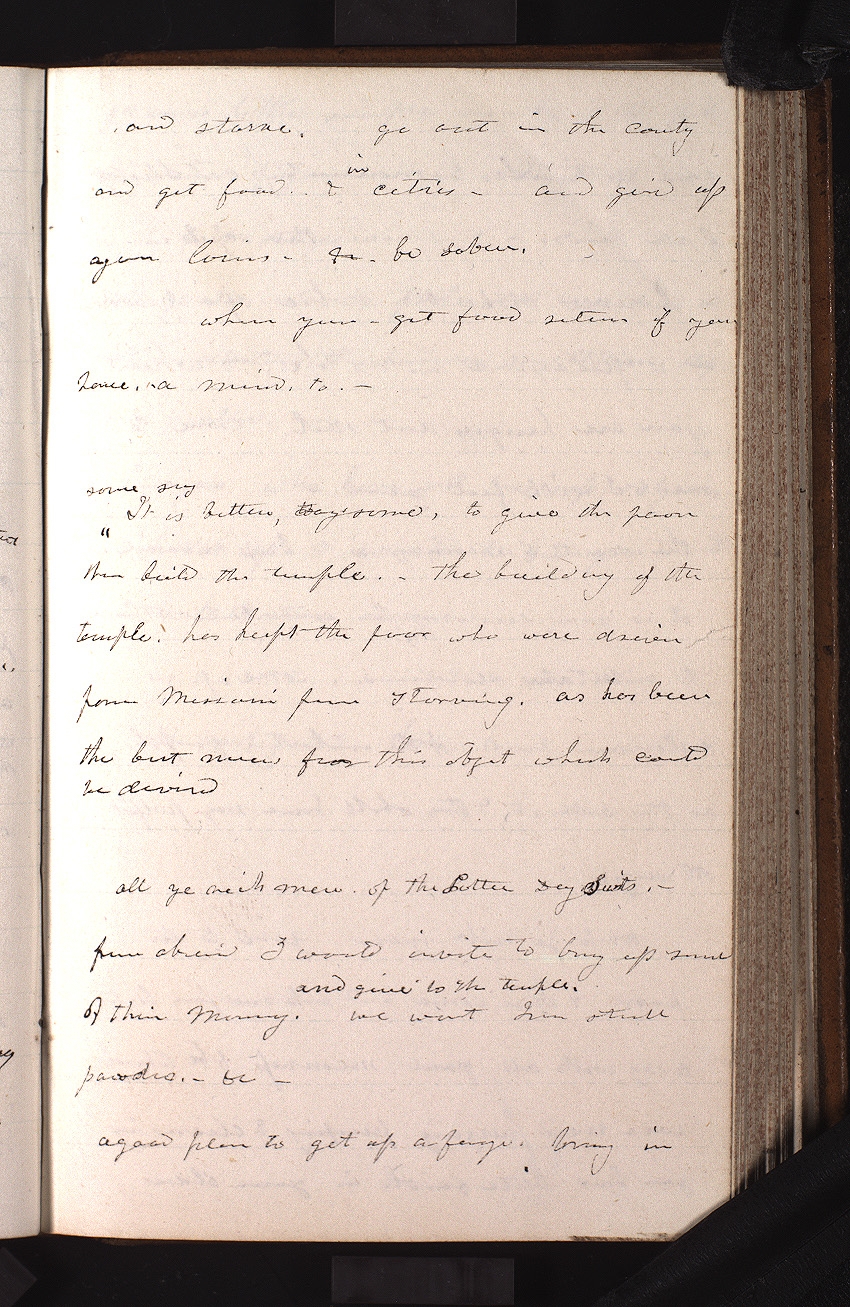 and starve. go out in the couty
and get food. & in citi's - and gird up
your loins - & be sober.
when you - get food return if you
have. a mind. to. -
some say
"It is better, say some, to give the poor
than build the temple. - the building of the
temple. has kept the poor who were driven
from Missouri from starving. as has been
the best mean for this objet which could
be devised
all ye rich men. of the Latter Day Saints. -
from abroad I would invite to bring up some
of their Money. and give to the temple.
we want Iron steel
powder. - &c -
a good plan to get up a forge. bring in